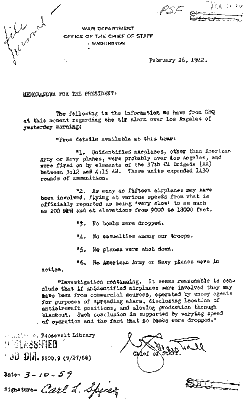 file
personal
PSF
WAR DEPARTMENT
OFFICE OF THE CHIEF OF STAFF
WASHINGTON
February 26, 1942.
MEMORANDUM FOR THE PRESIDENT:
The following is the information we have from GHQ
at this moment regarding the air alarm over Los Angeles of
yesterday morning:
"From details available at this hour:
"1. Unidentified airplanes, other than American
Army or Navy planes, were probably over Los Angeles, and
were fired on by elements of the 37th CA Brigade (AA)
between 3:12 and 4:15 AM. These units expended 1430
rounds of ammunition.
"2. As many as fifteen airplanes may have
been involved, flying at various speeds from what is
officially reported as being 'very slow' to as much
as 200 MPH and at elevations from 9000 to 18000 feet.
"3. No bombs were dropped.
"4. No casualties among our troops.
"5. No planes were shot down.
"6. No American Army or Navy planes were in
action.
"Investigation continuing. It seems reasonable to con-
clude that if unidentified airplanes were involved they may
have been from commercial sources, operated by enemy agents
for purposes of spreading alarm, disclosing location of
antiaircraft positions, and slowing production through
blackout. Such conclusion is supported by varying speed
of operation and the fact that no bombs were dropped."
Roosevelt Library
DECLASSIFIED
DOD DIR. 5200.9 (9/27/58)
Chief of Staff
Date- 3-10-59
Signature- Carl L. Spicer